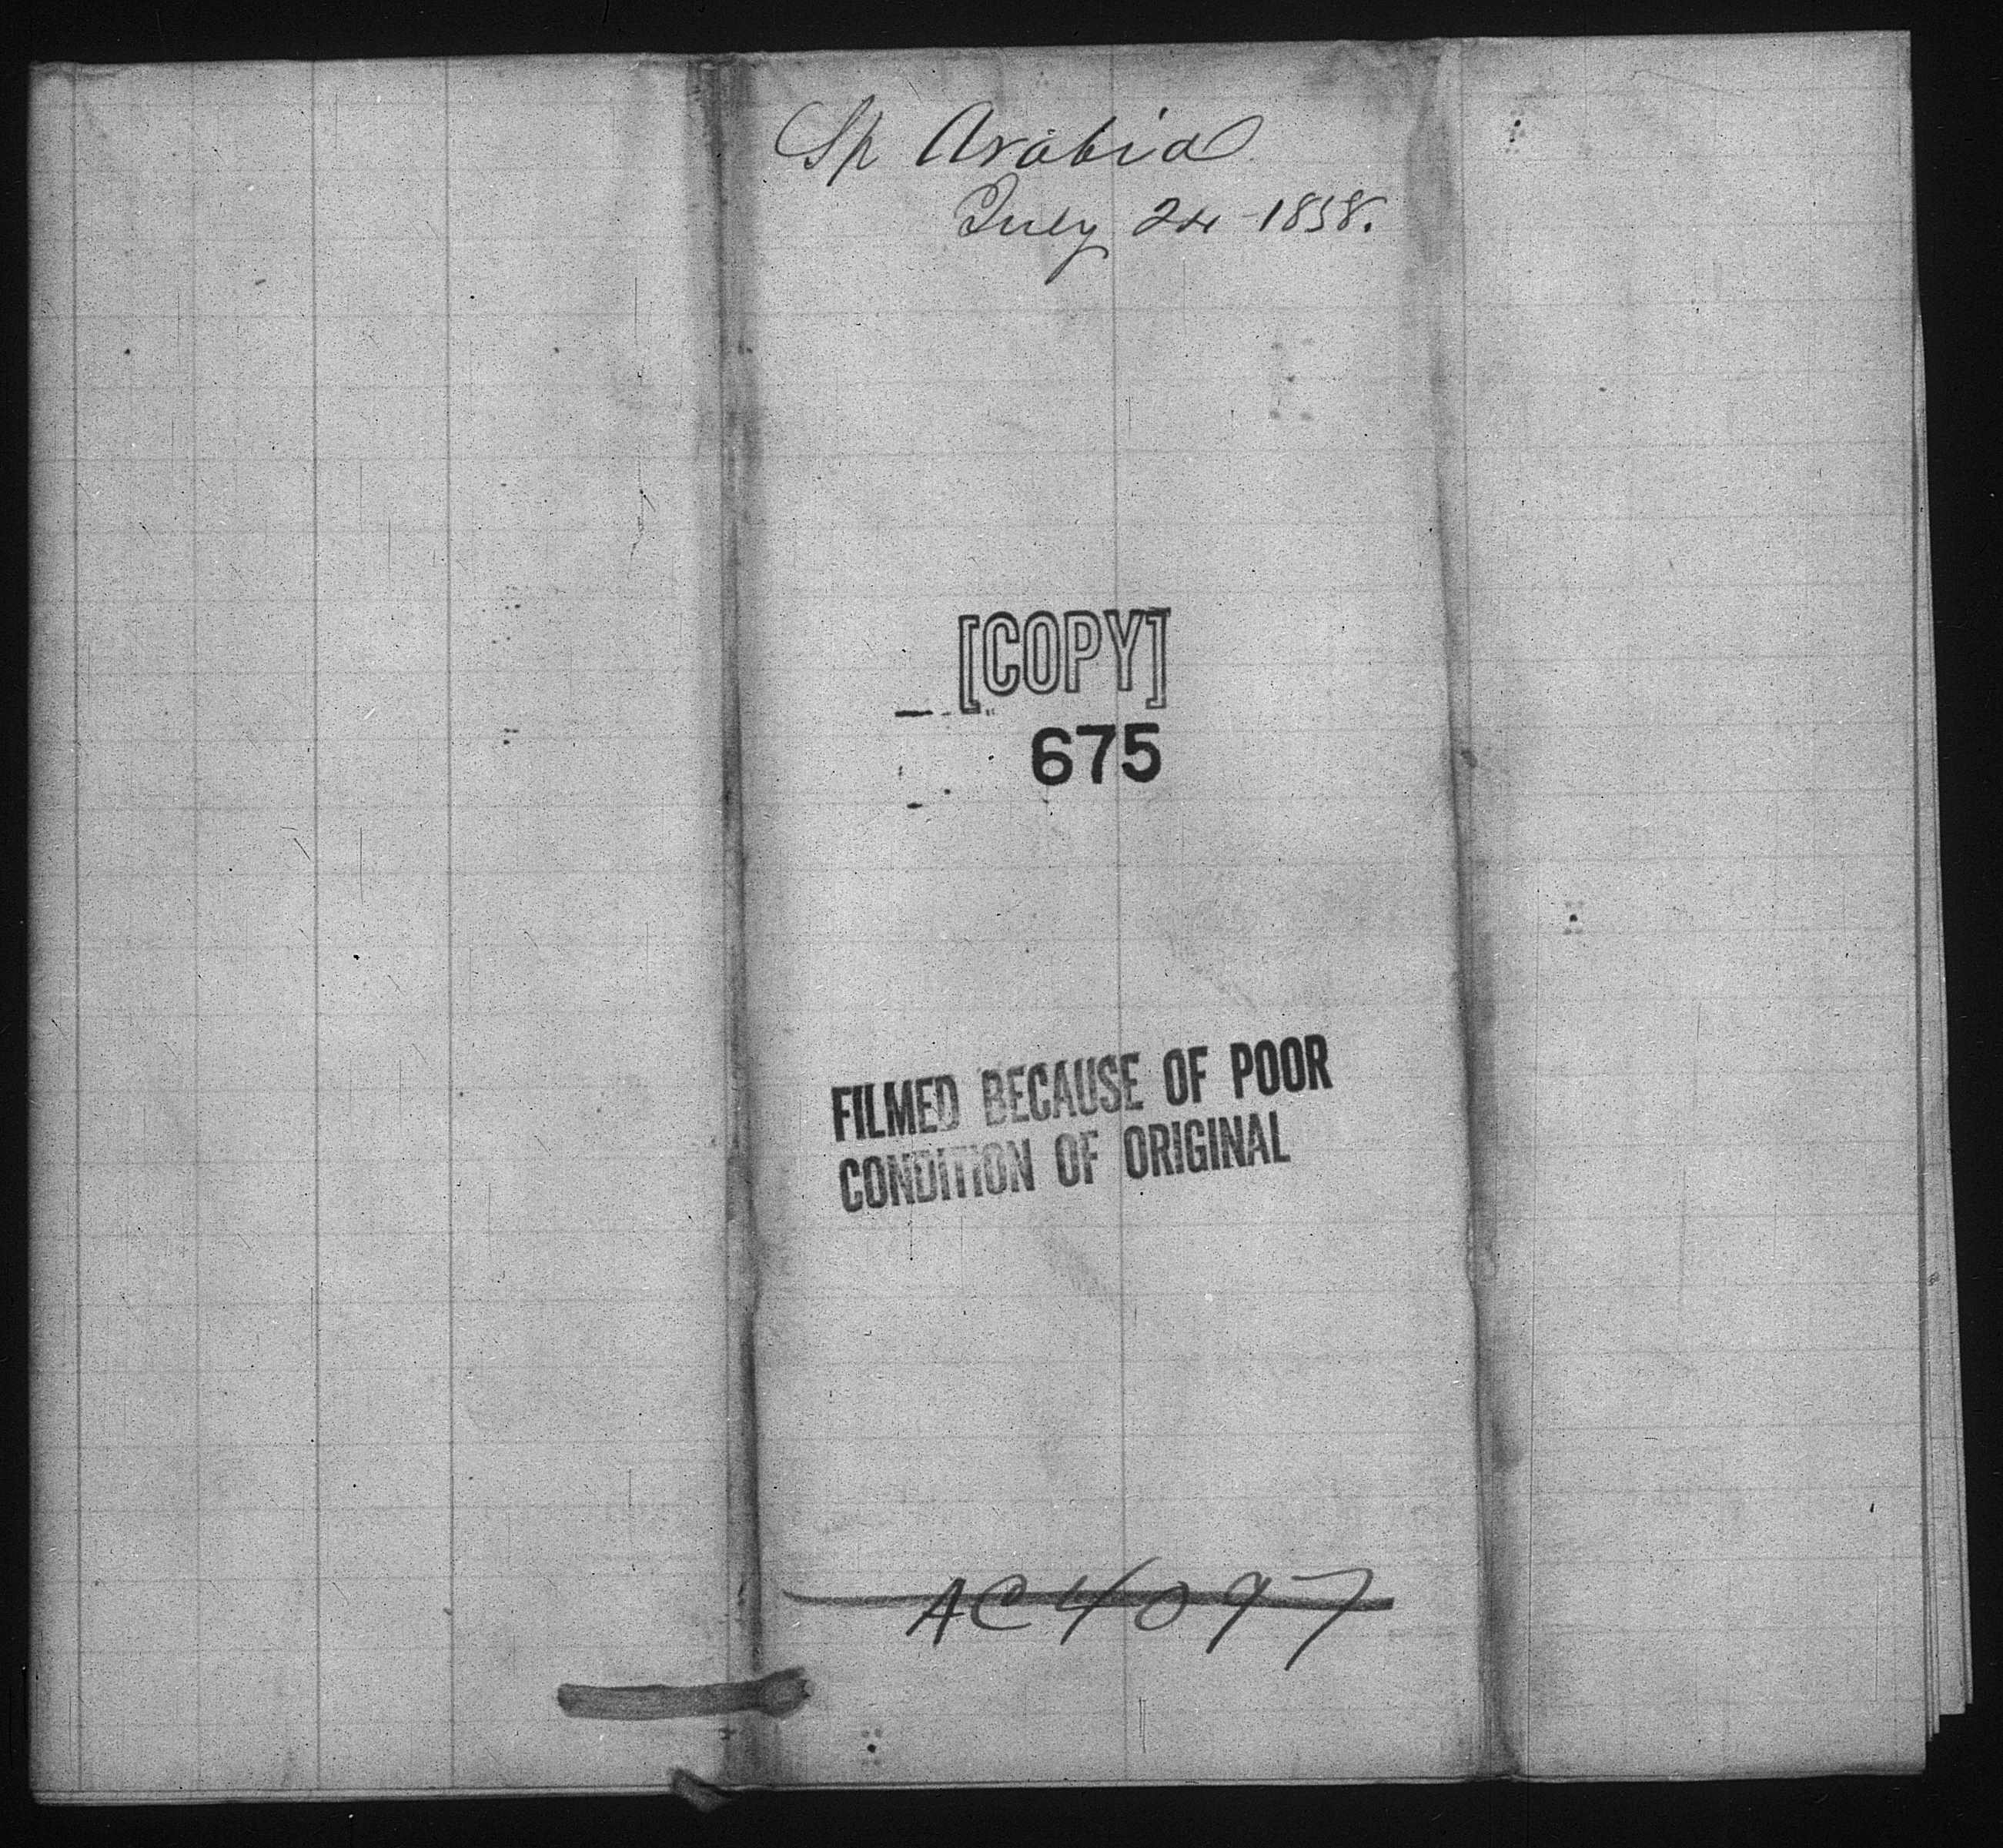 Sp Arabia
July 24 - 1858.
[COPY]
675
FILMED BECAUSE OF POOR
CONDITION OF ORIGINAL
AC 4097